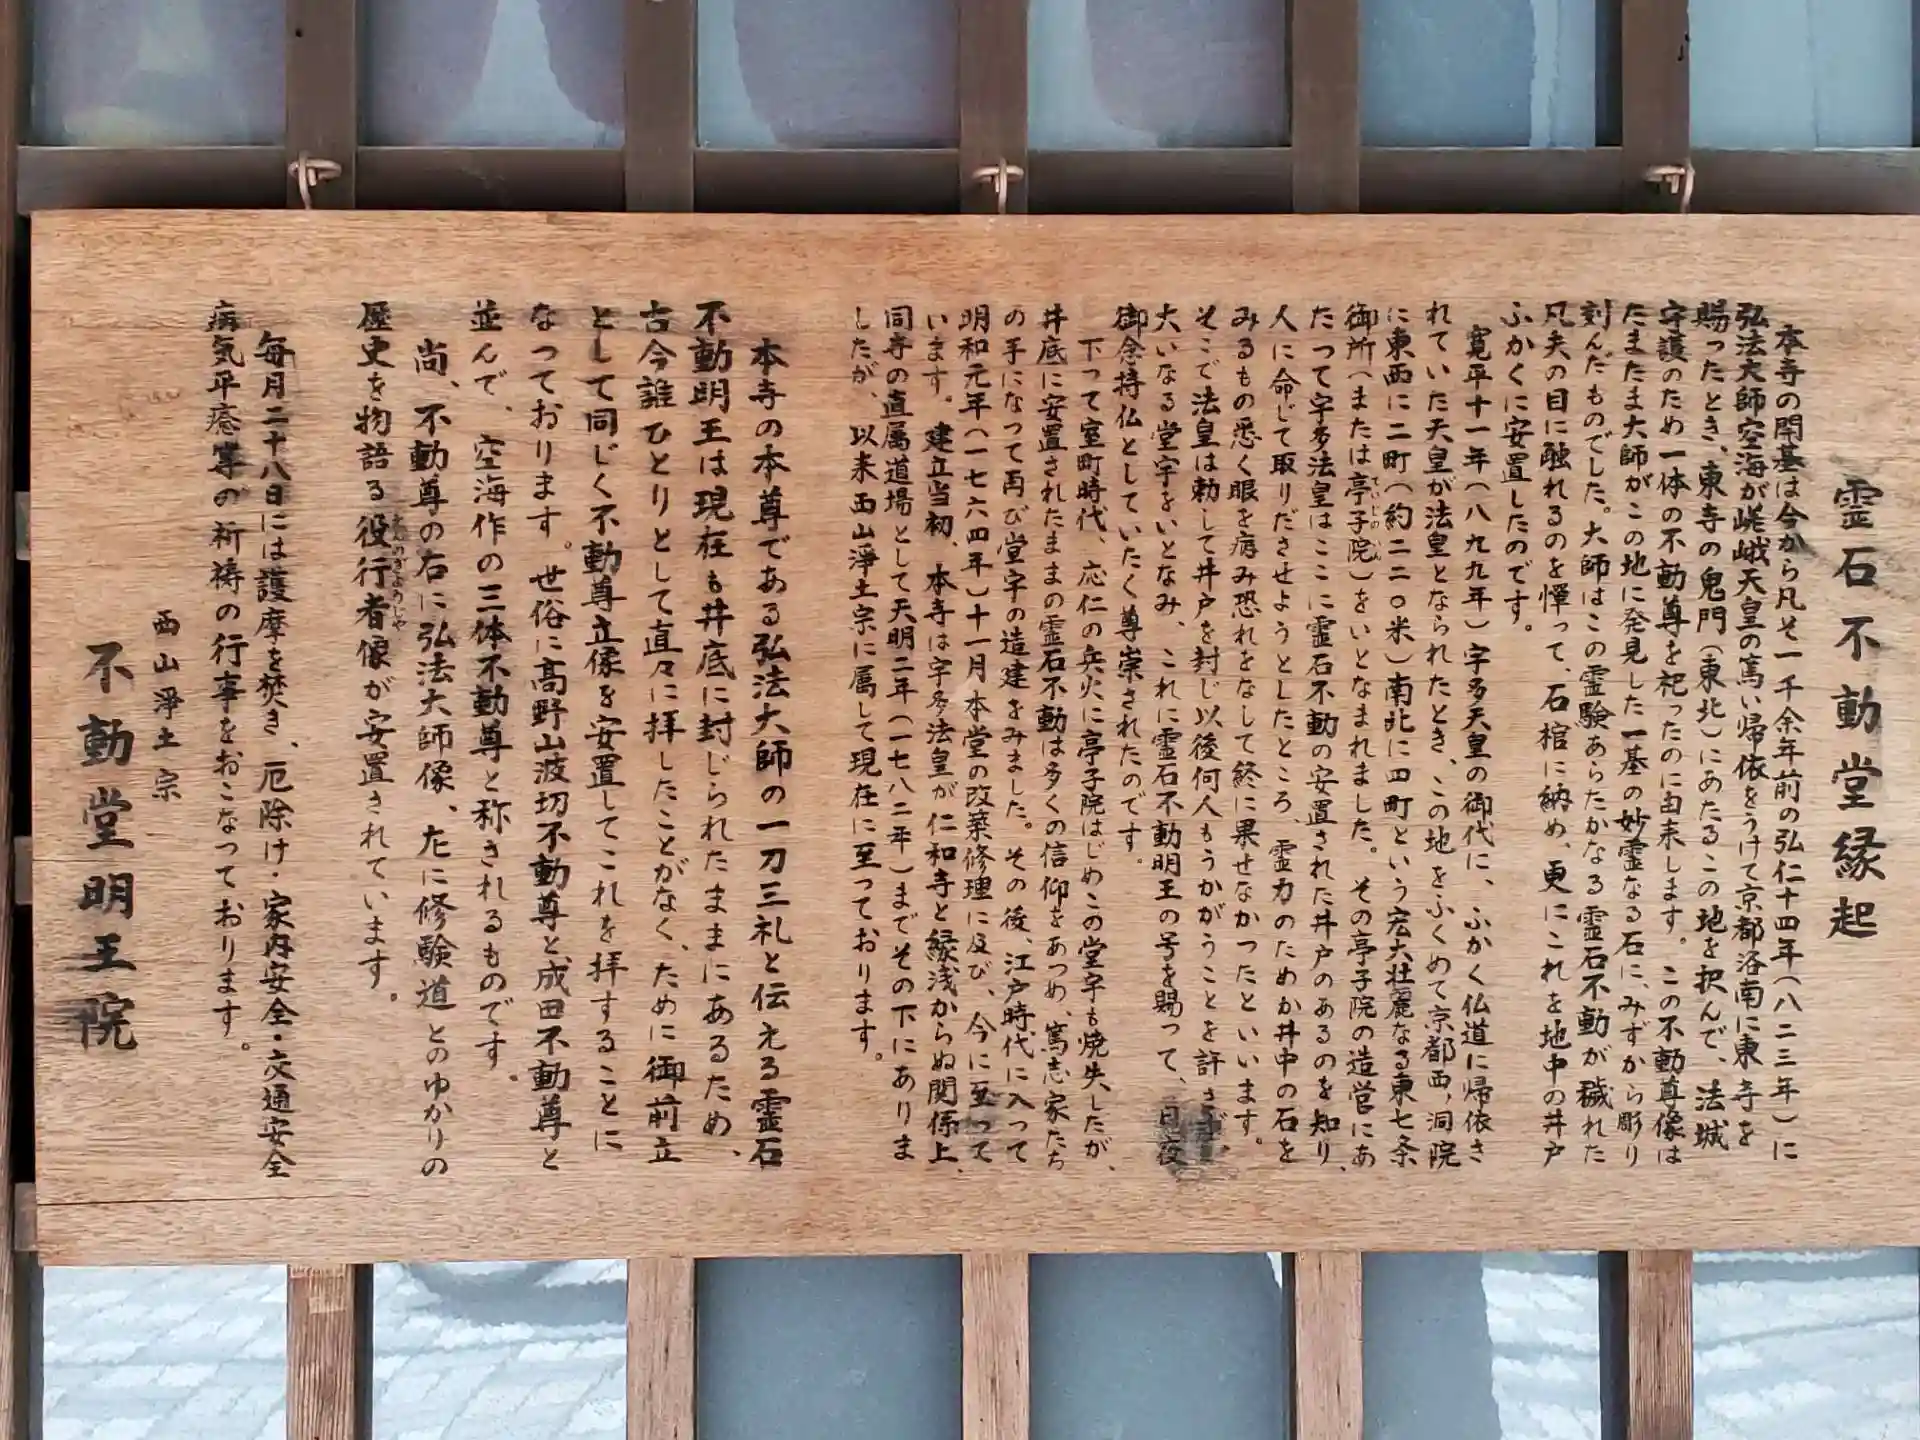 霊石不動堂縁起
本寺の開基は今から凡そ一千余年前の弘仁十四年(八二三年)に
弘法大師空海が嵯峨天皇の篤い帰依をうけて京都洛南に東寺を
賜ったとき、東寺の鬼門(東北)にあたるこの地を択んで、法城
守護のため一体の不動尊を祀ったのに由来します。この不動尊像は
たまたま大師がこの地に発見した一基の妙霊なる石に、みずから彫り
刻んだものでした。大師はこの霊験あらたかなる霊石不動が穢れた
凡夫の目に触れるのを憚って、石棺に納め、更にこれを地中の井戸
ふかくに安置したのです。
寛平十一年(八九九年)宇多天皇の御代に、ふかく仏道に帰依さ
れていた天皇が法皇となられたとき、この地をふくめて京都西洞院
に東西に二町(約二二〇米)南北に四町という宏大壮麗なる東七条
御所(または亭子院)をいとなまれました。その亭子院の造営にあ
ていじのいん
たって宇多法皇はここに霊石不動の安置された井戸のあるのを知り、
人に命じて取りださせようとしたところ、霊力のためか井中の石を
みるもの悉く眼を病み恐れをなして終に果せなかったといいます。
そこで法皇は勅して井戸を封じ以後何人もうかがうことを許さず、
大いなる堂宇をいとなみ、これに霊石不動明王の号を賜って、日夜
御念持仏としていたく尊崇されたのです。
下って室町時代、応仁の兵火に亭子院はじめこの堂宇も焼失したが、
井底に安置されたままの霊石不動は多くの信仰をあつめ、篤志家たち
の手になって再び堂宇の造建をみました。その後、江戸時代に入って
明和元年(一七六四年)十一月本堂の改築修理に及び、今に至って
います。建立当初、本寺は宇多法皇が仁和寺と縁浅からぬ関係上、
同寺の直属道場として天明二年(一七八二年)までその下にありま
したが、以来西山淨土宗に属して現在に至っております。
本寺の本尊である弘法大師の一刀三礼と伝える霊石
不動明王は現在も井底に封じられたままにあるため、
古今誰ひとりとして直々に拝したことがなく、ために御前立
として同じく不動尊立像を安置してこれを拝することに
なっております。世俗に高野山波切不動尊と成田不動尊と
並んで、空海作の三体不動尊と称されるものです。
尚、不動尊の右に弘法大師像、左に修験道とのゆかりの
歴史を物語る役行者像が安置されています。
えんのぎようのじや
毎月二十八日には護摩を焚き、厄除け・家内安全・交通安全
病気平癒等の祈祷の行事をおこなっております。
西山淨土宗
不動堂明王院